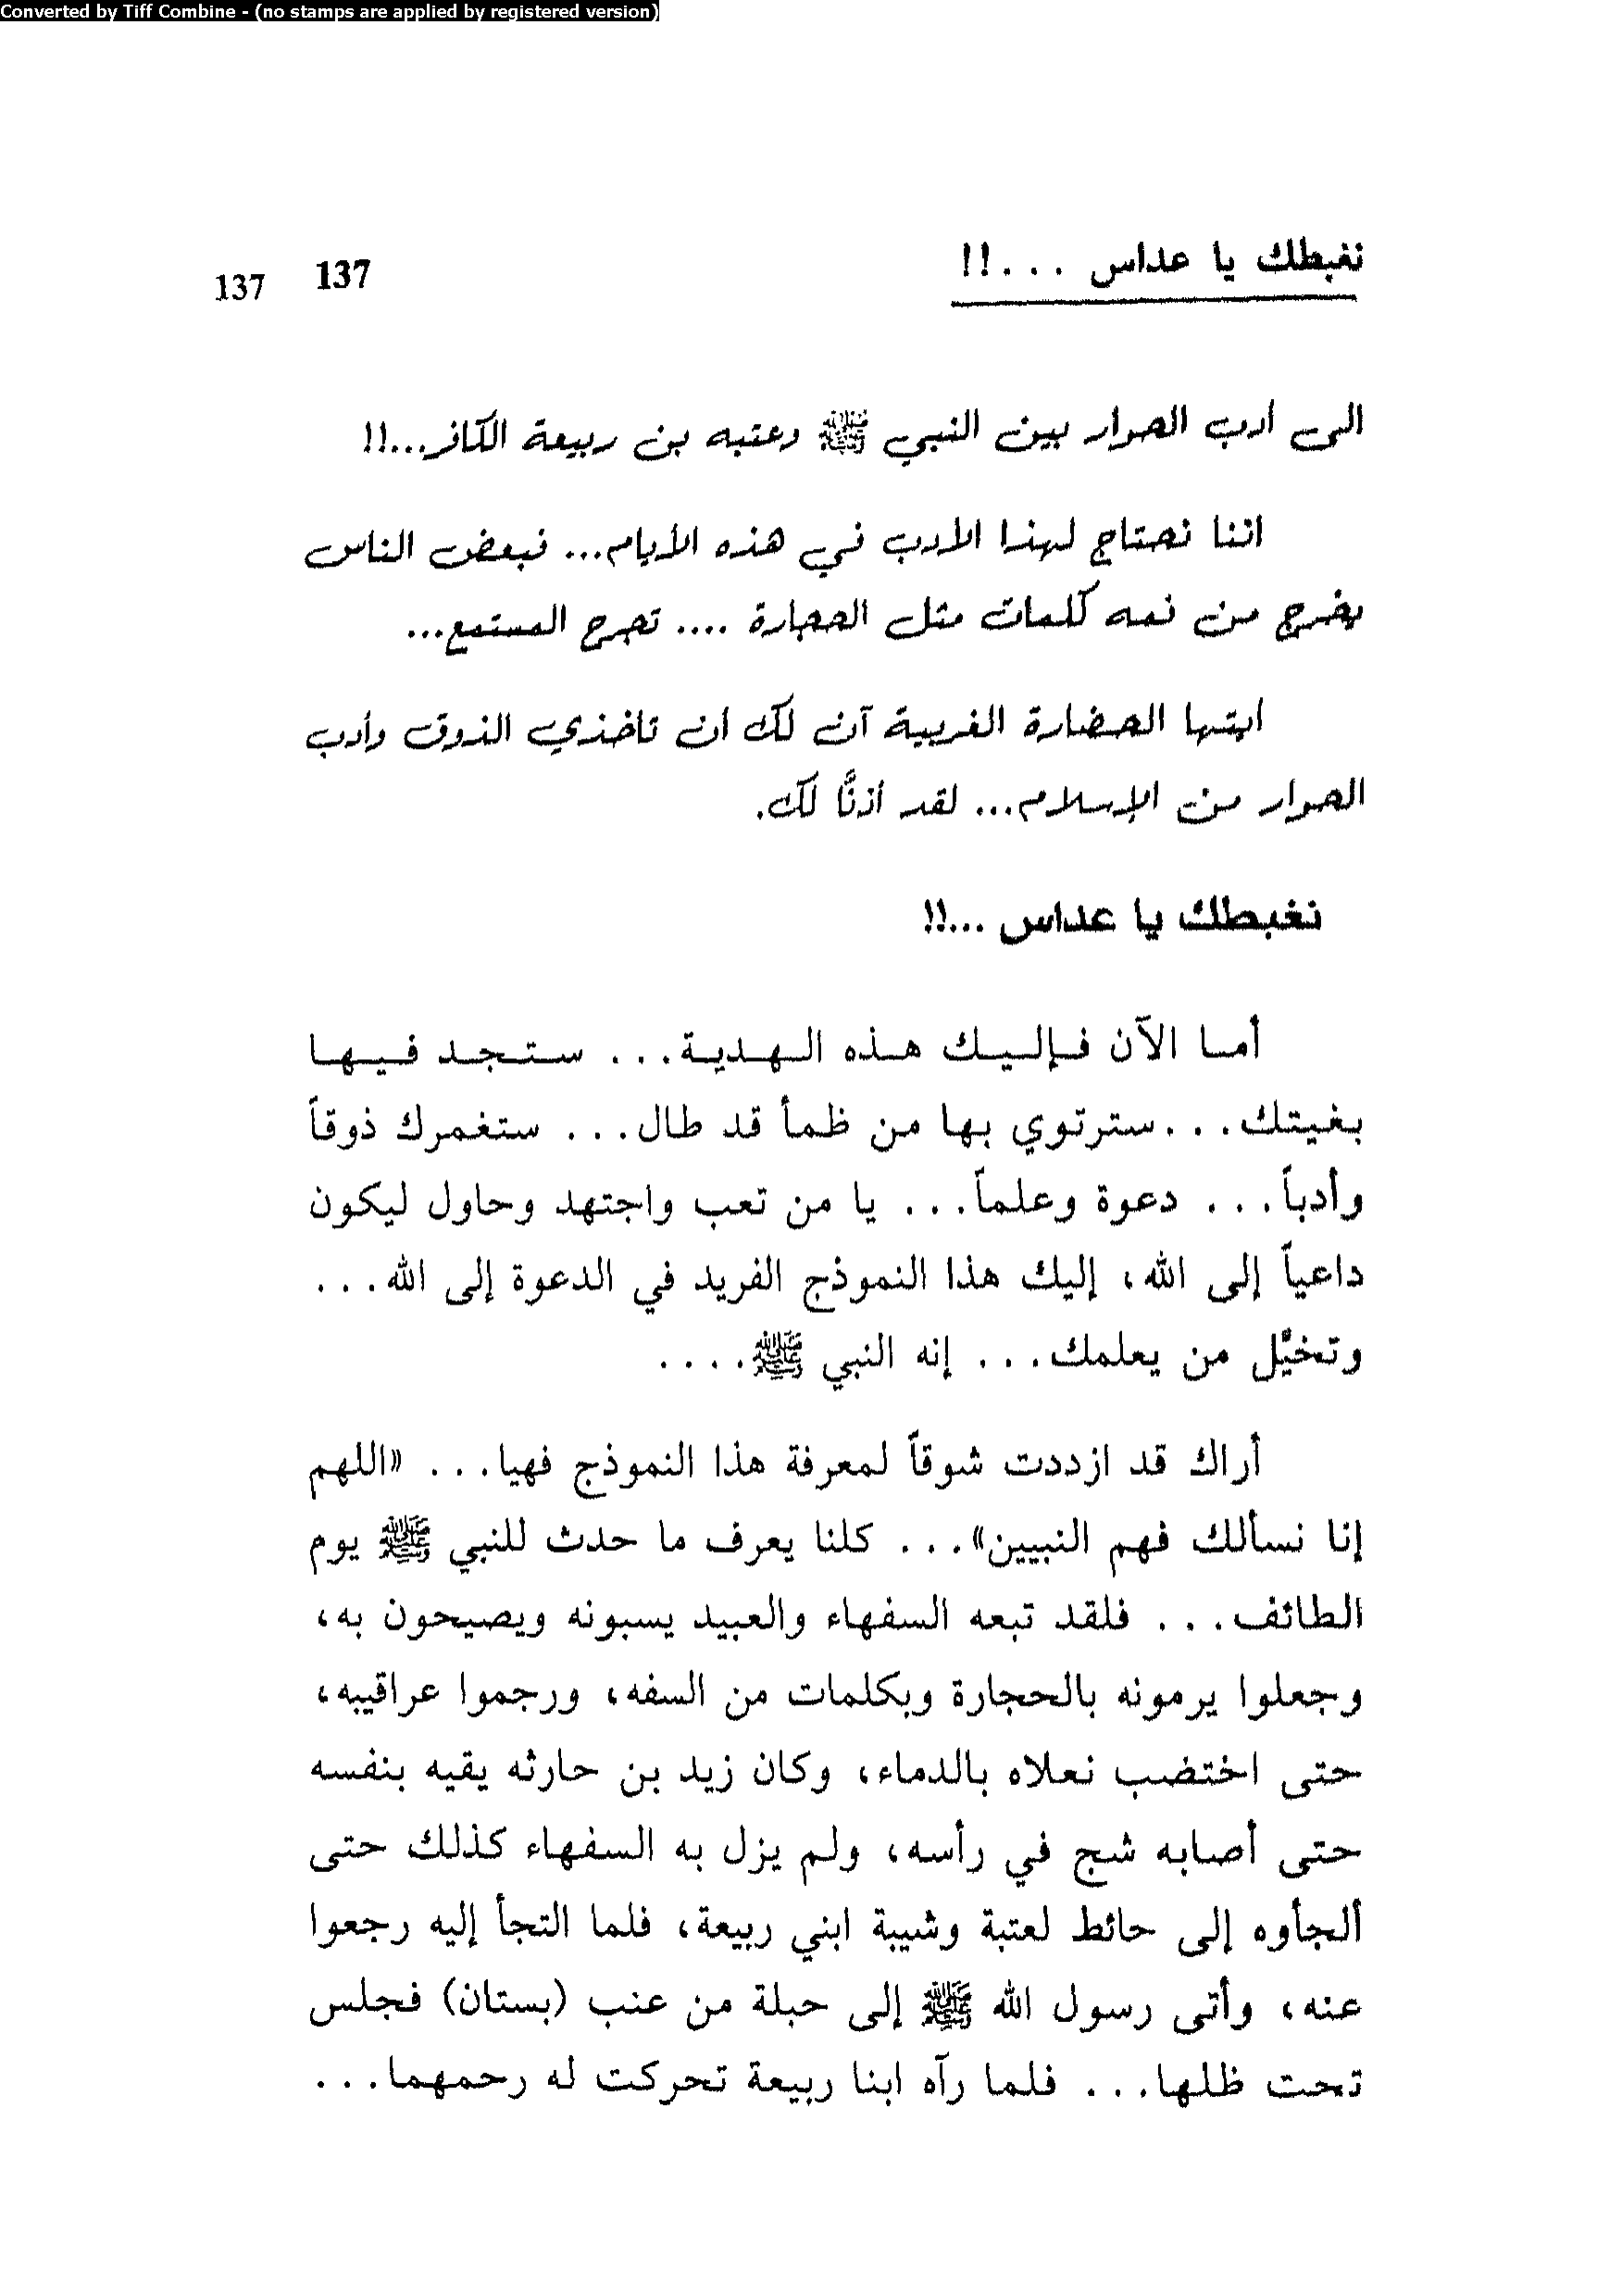 Converted by Tiff Combine - (no stamps are applied by registered version)
نغبطك يا عداس . . . !!
137
137
الى أدب الحوار بين النبي ﷺ وعتبه بن ربيعة الكافر...!!
اننا نحتاج لهذا الأدب في هذه الأيام... فبعض الناس
يخرج من فمه كلمات مثل الحجارة .... تجرح المستمع...
ايتها الحضارة الغربية آن لك ان تاخذي الذوق وأدب
الحوار من الإسلام... لقد أذنَّا لك.
نغبطك يا عداس ...!!
أما الآن فإليك هذه الهدية. . . ستجد فيها
بغيتك. . .سترتوي بها من ظمأ قد طال. . . ستغمرك ذوقاً
وأدباً. . . دعوة وعلماً. . . يا من تعب واجتهد وحاول ليكون
داعياً إلى الله، إليك هذا النموذج الفريد في الدعوة إلى الله. . .
وتخيَّل من يعلمك. . . إنه النبي ﷺ. . . .
أراك قد ازددت شوقاً لمعرفة هذا النموذج فهيا. . . «اللهم
إنا نسألك فهم النبيين». . . كلنا يعرف ما حدث للنبي ﷺ يوم
الطائف. . . فلقد تبعه السفهاء والعبيد يسبونه ويصيحون به،
وجعلوا يرمونه بالحجارة وبكلمات من السفه، ورجموا عراقيبه،
حتى اختضب نعلاه بالدماء، وكان زيد بن حارثه يقيه بنفسه
حتى أصابه شج في رأسه، ولم يزل به السفهاء كذلك حتى
ألجأوه إلى حائط لعتبة وشيبة ابني ربيعة، فلما التجأ إليه رجعوا
عنه، وأتى رسول الله ﷺ إلى حبلة من عنب (بستان) فجلس
تحت ظلها. . . فلما رآه ابنا ربيعة تحركت له رحمهما. . .